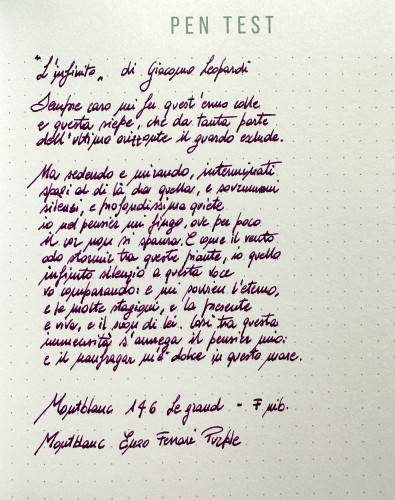 PEN TEST
"L'infinito" di Giacomo Leopardi
Sempre caro mi fu quest'ermo colle
e questa siepe, che da tanta parte
dell'ultimo orizzonte il guardo esclude.
Ma sedendo e mirando, interminati
spazi al di là da quella, e sovrumani
silenzi, e profondissima quiete
io nel pensier mi fingo, ove per poco
il cor non si spaura. E come il vento
odo stormir tra queste piante, io quello
infinito silenzio a questa voce
vo comparando: e mi sovvien l'eterno,
e le morte stagioni, e la presente
e viva, e il suon di lei. Così tra questa
immensità s'annega il pensier mio:
e il naufragar m'è dolce in questo mare.
Montblanc 146 Le grand - F nib.
Montblanc Enzo Ferrari Purple